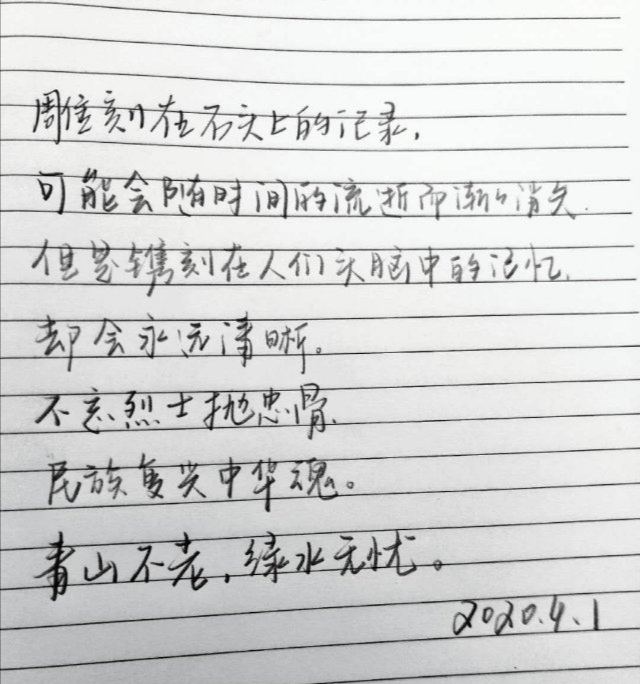 周佳刻在石头上的记录,
可能会随时间的流逝而渐渐消失.
但是镌刻在人们头脑中的记忆,
却会永远清晰。
不忘烈士抛忠骨,
民族复兴中华魂。
青山不老,绿水无忧。
2020.4.1